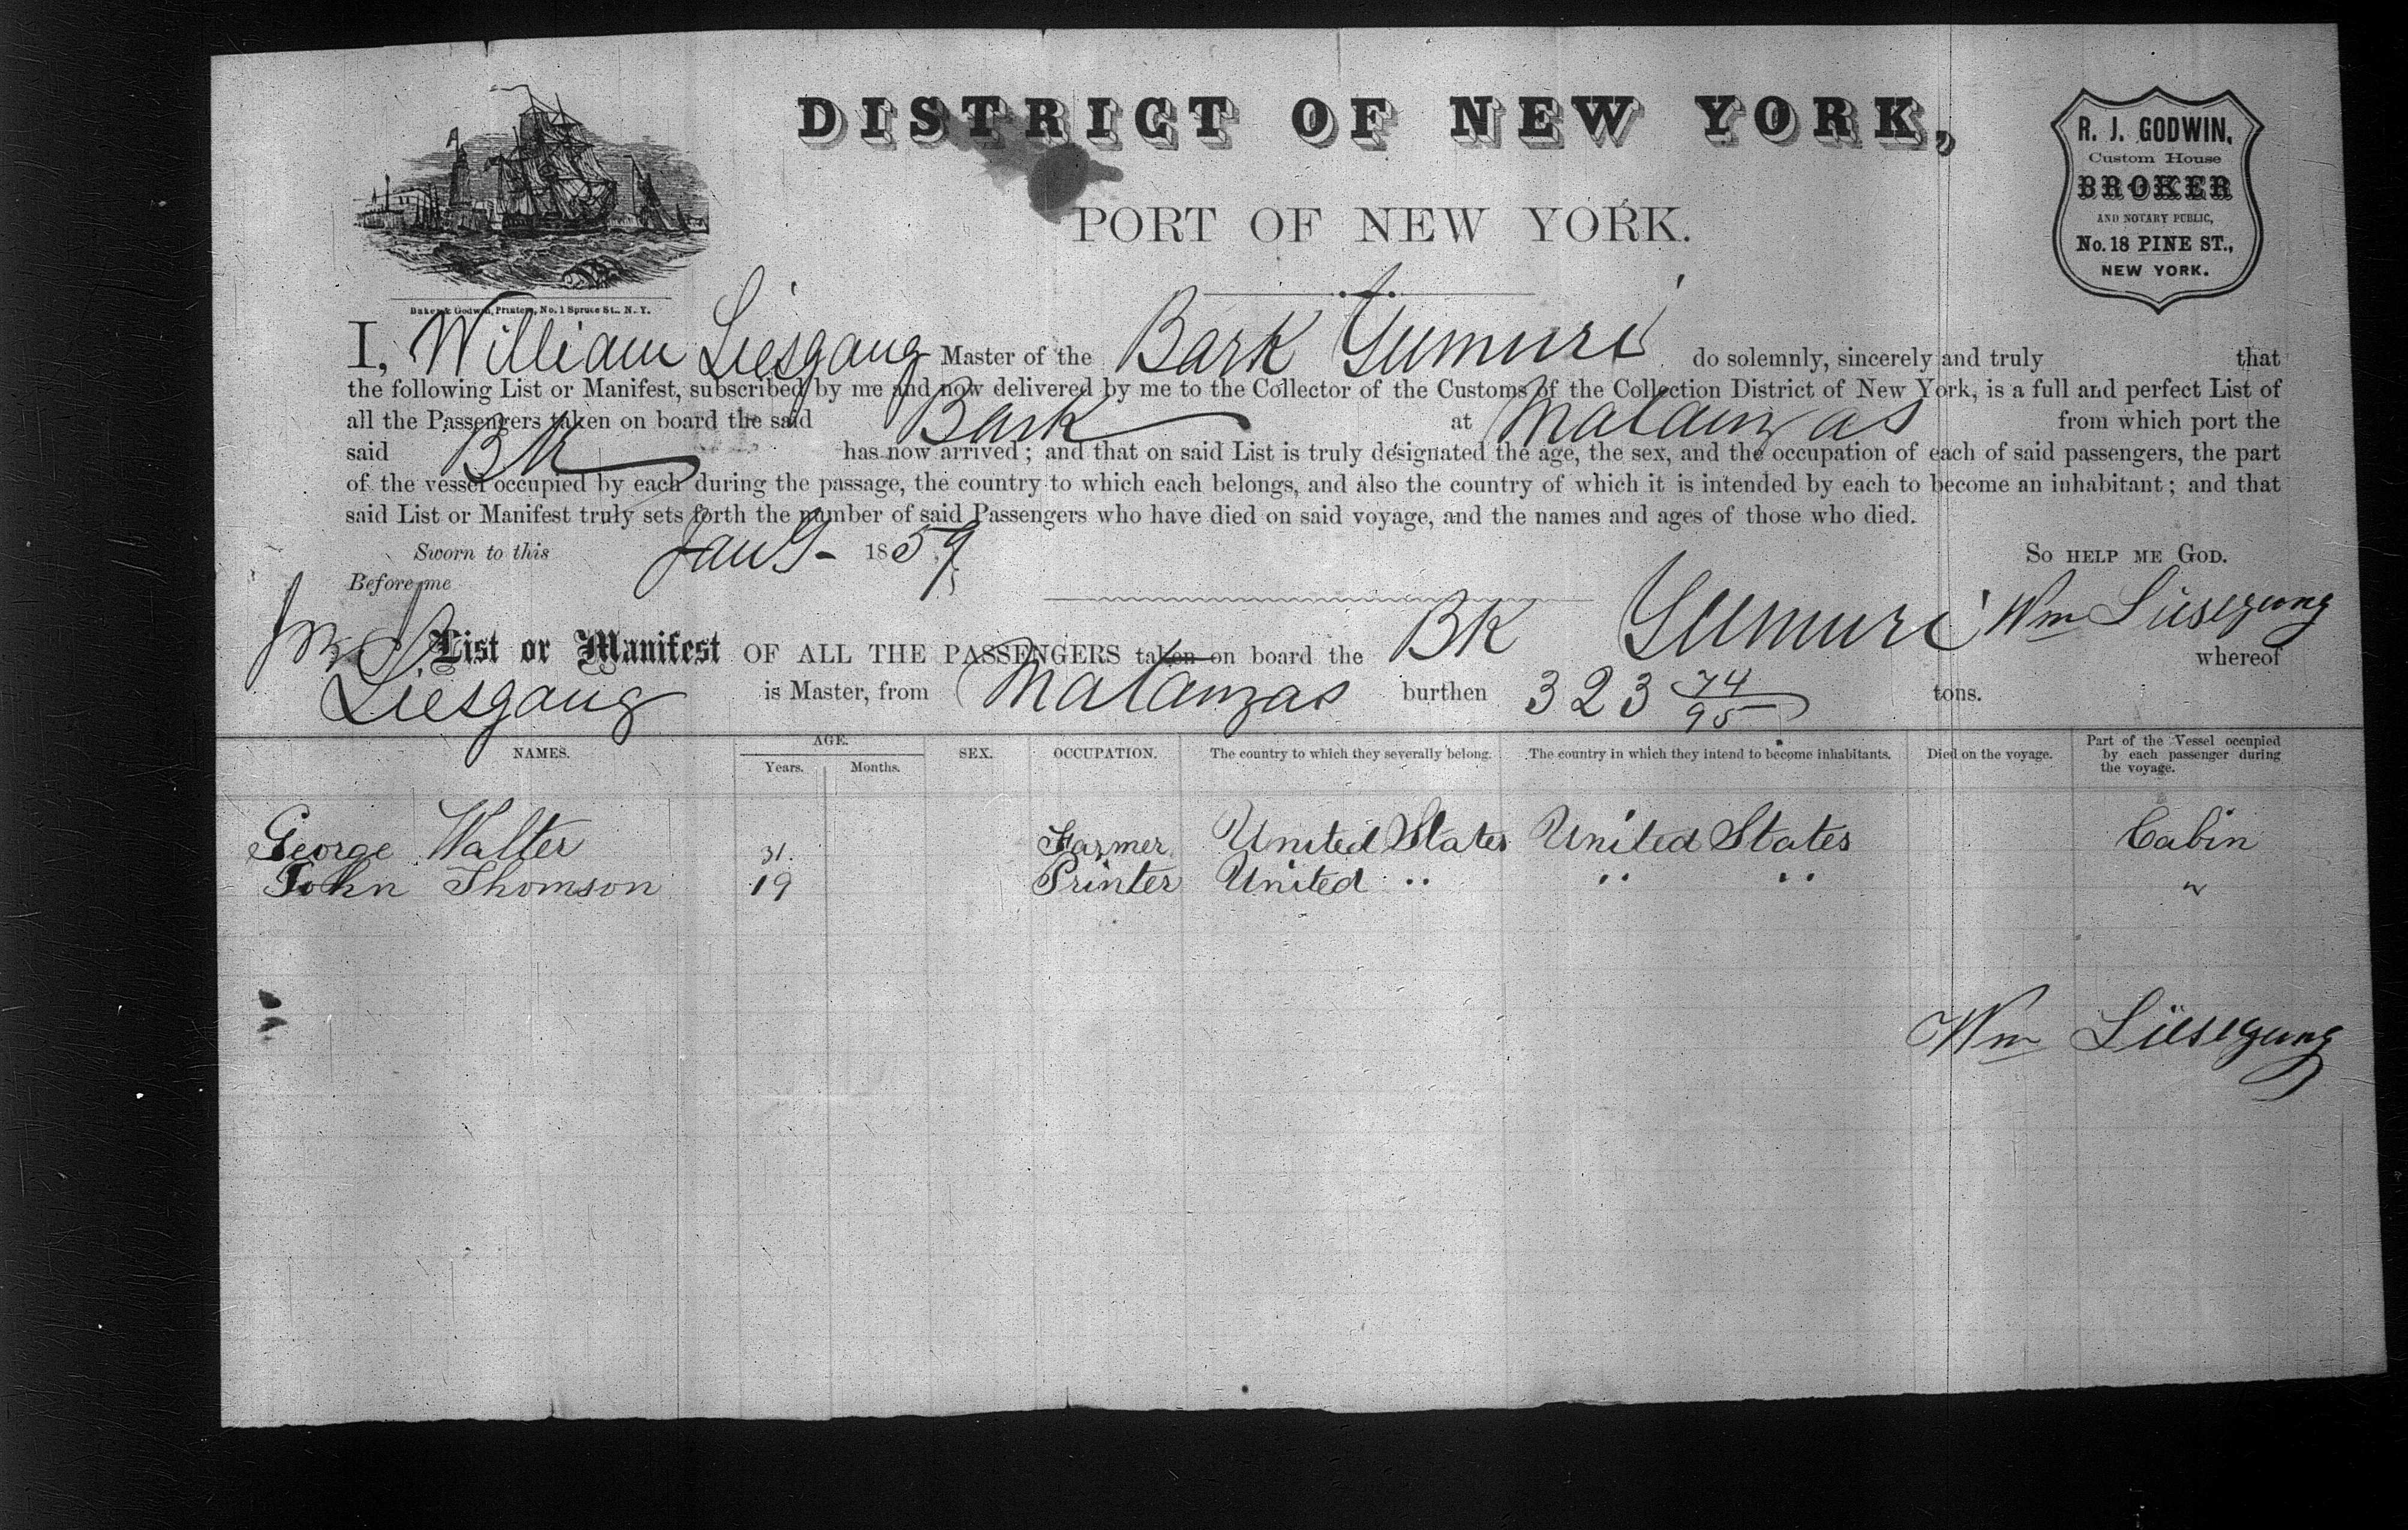 DISTRICT OF NEW YORK,
PORT OF NEW YORK.
R. J. GODWIN,
Custom House
BROKER
AND NOTARY PUBLIC,
No. 18 PINE ST.,
NEW YORK.
Baker & Godwin, Printers, No. 1 Spruce St., N. Y.
I, William Liesgang Master of the Bark Yumuri do solemnly, sincerely and truly that
the following List or Manifest, subscribed by me and now delivered by me to the Collector of the Customs of the Collection District of New York, is a full and perfect List of
all the Passengers taken on board the said Bark at Matanzas from which port the
said Bk has now arrived; and that on said List is truly designated the age, the sex, and the occupation of each of said passengers, the part
of the vessel occupied by each during the passage, the country to which each belongs, and also the country of which it is intended by each to become an inhabitant; and that
said List or Manifest truly sets forth the number of said Passengers who have died on said voyage, and the names and ages of those who died.
Sworn to this Jan 9 - 1859 So help me God.
Before me
Wm Liesegang
List or Manifest OF ALL THE PASSENGERS taken on board the BK Yumuri whereof
Liesgang is Master, from Matanzas burthen 323 74/95 tons.
NAMES. AGE. Years. Months. SEX. OCCUPATION. The country to which they severally belong. The country in which they intend to become inhabitants. Died on the voyage. Part of the Vessel occupied by each passenger during the voyage.
George Walter 31. Farmer United States United States Cabin
John Thomson 19 Printer United " " " "
Wm Liesegang